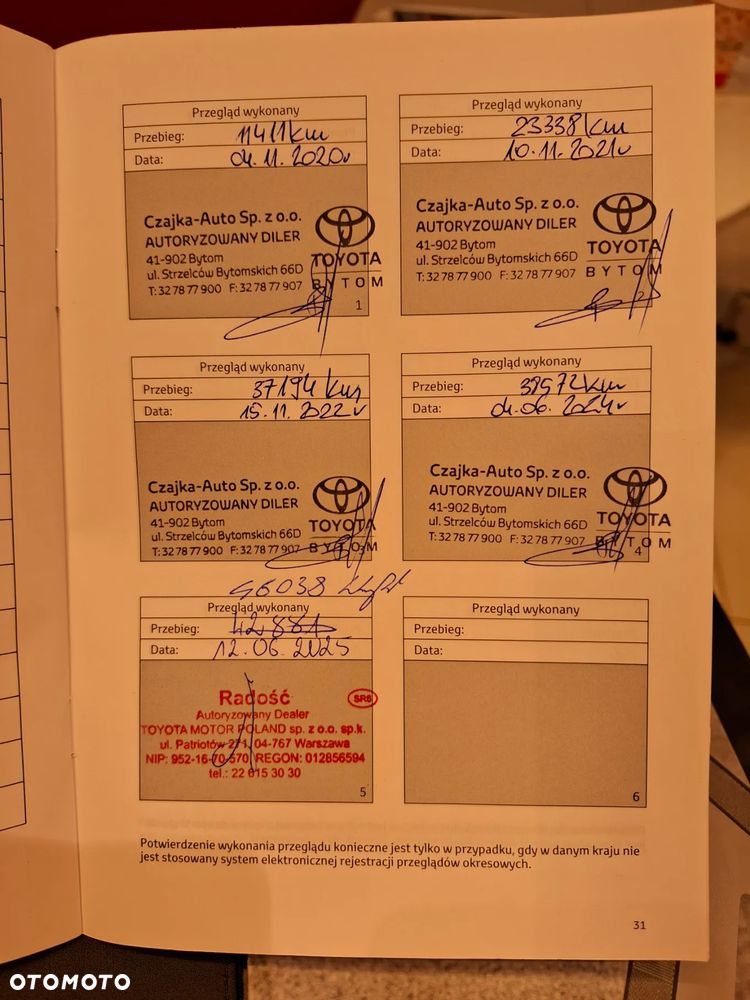 Przegląd wykonany
Przebieg: 11411 km
Data: 04.11.2020r
Czajka-Auto Sp. z o.o.
AUTORYZOWANY DILER
41-902 Bytom
ul. Strzelców Bytomskich 66D
T: 32 78 77 900 F: 32 78 77 907
TOYOTA
BYTOM
1
Przegląd wykonany
Przebieg: 23338 km
Data: 10.11.2021r
Czajka-Auto Sp. z o.o.
AUTORYZOWANY DILER
41-902 Bytom
ul. Strzelców Bytomskich 66D
T: 32 78 77 900 F: 32 78 77 907
TOYOTA
BYTOM
2
Przegląd wykonany
Przebieg: 37194 km
Data: 15.11.2022r
Czajka-Auto Sp. z o.o.
AUTORYZOWANY DILER
41-902 Bytom
ul. Strzelców Bytomskich 66D
T: 32 78 77 900 F: 32 78 77 907
TOYOTA
BYTOM
3
Przegląd wykonany
Przebieg: 39572 km
Data: 04.06.2024r
Czajka-Auto Sp. z o.o.
AUTORYZOWANY DILER
41-902 Bytom
ul. Strzelców Bytomskich 66D
T: 32 78 77 900 F: 32 78 77 907
TOYOTA
BYTOM
4
46038
Przegląd wykonany
Przebieg: 42881
Data: 12.06.2025
Radość SR5
Autoryzowany Dealer
TOYOTA MOTOR POLAND sp. z o.o. sp.k.
ul. Patriotów 271, 04-767 Warszawa
NIP: 952-16-70-570, REGON: 012856594
tel.: 22 615 30 30
5
Przegląd wykonany
Przebieg:
Data:
6
Potwierdzenie wykonania przeglądu konieczne jest tylko w przypadku, gdy w danym kraju nie
jest stosowany system elektronicznej rejestracji przeglądów okresowych.
31
OTOMOTO